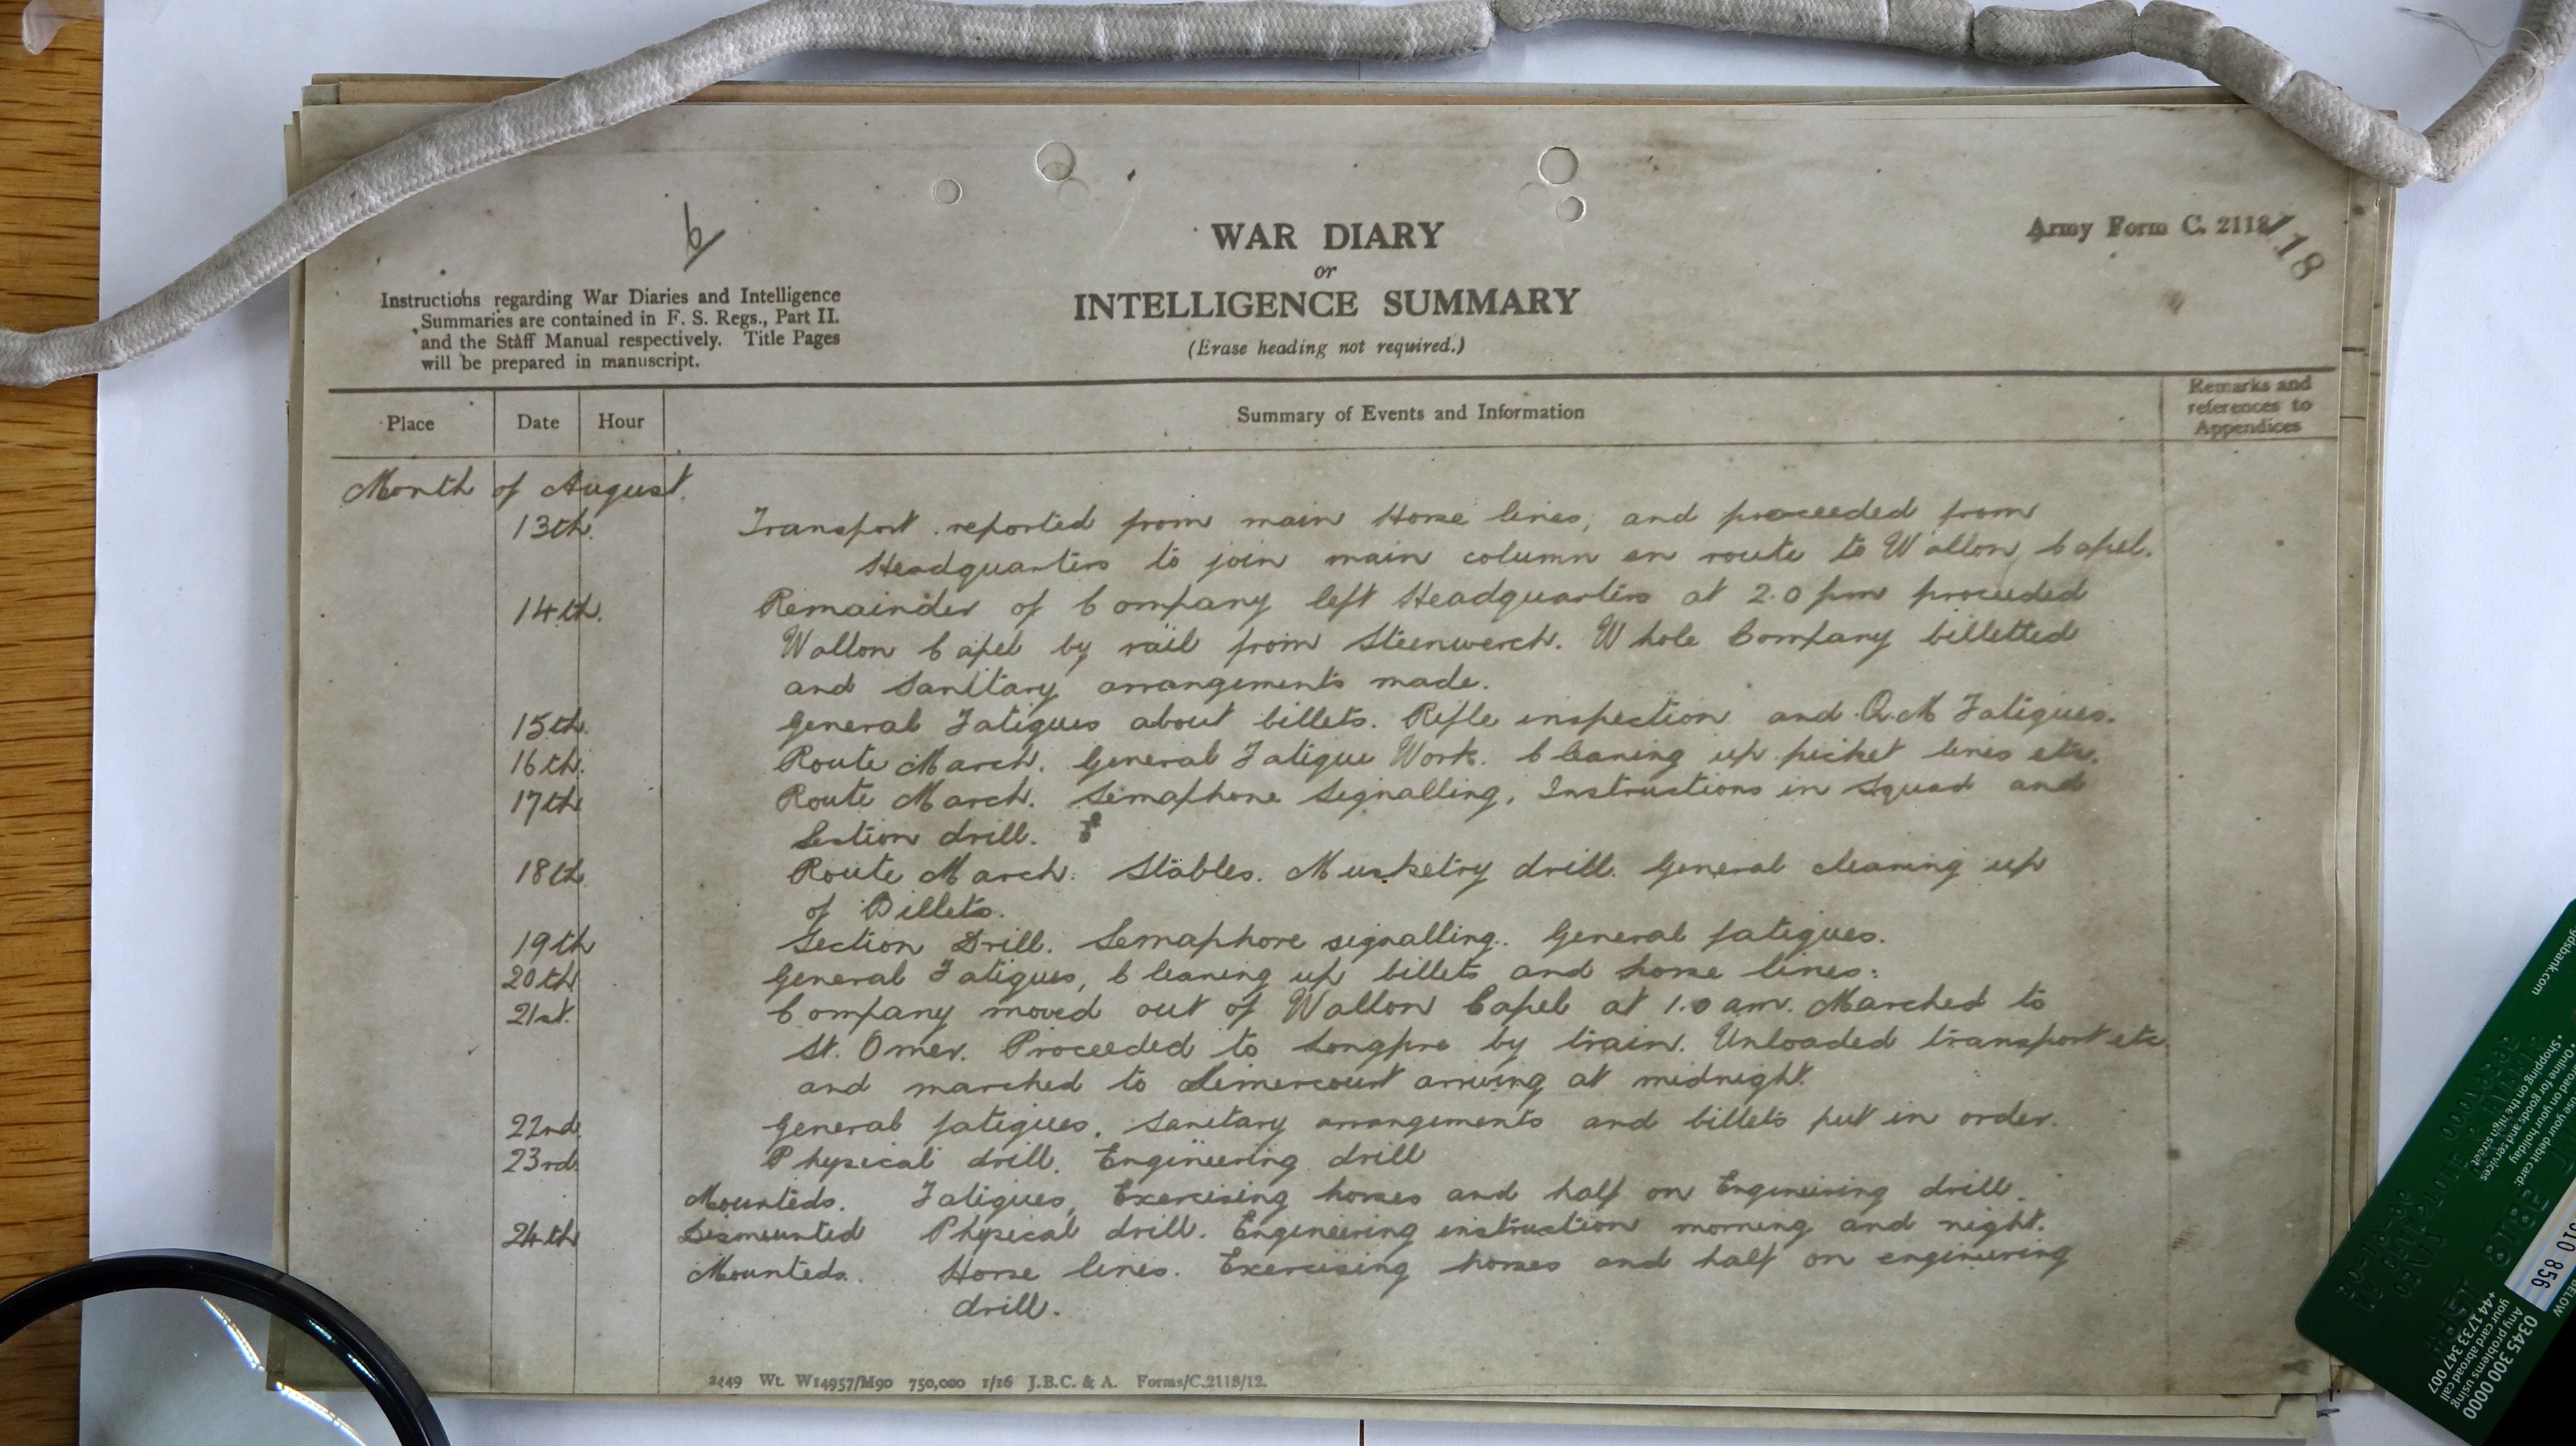 b/
Army Form C. 2118
118
WAR DIARY
or
INTELLIGENCE SUMMARY
(Erase heading not required.)
Instructions regarding War Diaries and Intelligence
Summaries are contained in F. S. Regs., Part II.
and the Staff Manual respectively. Title Pages
will be prepared in manuscript.
Place
Date
Hour
Summary of Events and Information
Remarks and
references to
Appendices
Month of August.
13th. Transport reported from main Horse lines, and proceeded from
Headquarters to join main column en route to Wallon Capel.
14th. Remainder of Company left Headquarters at 2.0 pm proceeded
Wallon Capel by rail from Steenwerch. Whole Company billetted
and Sanitary arrangements made.
15th. General Fatigues about billets. Rifle inspection and Q.M Fatigues.
16th. Route March. General Fatigue Work. Cleaning up picket lines etc.
17th Route March. Semaphone Signalling, Instructions in Squad and
Section drill.
18th Route March. Stables. Musketry drill. General cleaning up
of Billets.
19th Section Drill. Semaphore signalling. General fatigues.
20th General Fatigues, Cleaning up billets and horse lines.
21st. Company moved out of Wallon Capel at 1.0 am. Marched to
St. Omer. Proceeded to Longpre by train. Unloaded transport etc
and marched to Limercourt arriving at midnight.
22nd General fatigues. Sanitary arrangements and billets put in order.
23rd Physical drill. Engineering drill
Mounteds. Fatigues, Exercising horses and half on Engineering drill.
24th Dismounted Physical drill. Engineering instruction morning and night.
Mounteds. Horse lines. Exercising horses and half on engineering
drill.
2449 Wt. W14957/M90 750,000 1/16 J.B.C. & A. Forms/C.2118/12.
gdsbank.com
0345 300 0000
Any problems using
your card abroad call
+44 1733 347 007
010 856